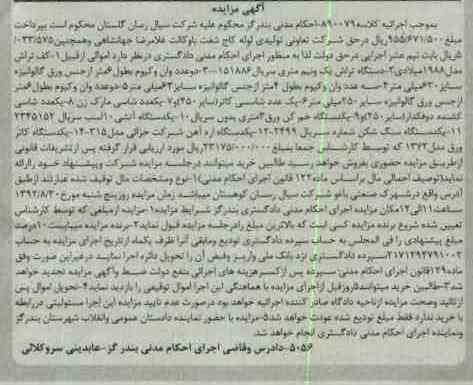 آگهی مزایده
بموجب اجرائیه کلاسه ۸۹۰۰۷۹ اجرای احکام مدنی بندر گز محکوم علیه شرکت سیال رسان گلستان محکوم است بپرداخت
مبلغ ۹۵۵/۶۷۱/۵۰۰ ریال درحق شرکت تعاونی تولیدی لوله کاج شفت باوکالت غلامرضا جهانشاهی وهمچنین ۰۳۳/۵۷۵/
۵ ریال بابت نیم عشر اجرایی درحق دولت لذا به منظور اجرای احکام مدنی دادگستری درنظر دارد اموالی ازقبیل ۱-کف تراش
مدل ۱۹۸۸ میلادی ۲-دستگاه تراش یک ونیم متری سریال ۱۵۱۸۸۶-۳-دوعدد وان وکیوم بطول ۶ متر ازجنس ورق گالوانیزه
سایز ۶۳۰ میلی متر ۴-سه عدد وان وکیوم بطول ۴ متر ازجنس گالوانیزه سایز ۶۳۰ میلی متر ۵-دوعدد وان وکیوم بطول ۶ متر
ازجنس ورق گالوانیزه سایز ۲۵۰ میلی متر ۶-یک عدد شاسی کاتر (سایز ۲۵۰) و ۷-یکعدد شاسی مارک زن ۸-یکعدد شاسی
کشنده دوفکدار (سایز ۲۵۰) و ۹-یکدستگاه خم کن ورق ۳ متری بدون سریال ۱۰-یکدستگاه آتشی ۱۰ لسب سریال ۲۳۴۵۱۵۲
۱۱-یکدستگاه سنگ شکن شماره سریال ۲۴۹۹-۱۲-یکدستگاه اره آهن شرکت خزائی مدل ۳۱۵-۱۴-یکدستگاه کاتر
ورق مدل ۱۳۷۲ که توسط کارشناس جمعا بمبلغ ۲۳۱۷۵/۰۰۰/۰۰۰ ریال مورد ارزیابی قرار گرفته پس ازتشریفات قانونی
ازطریق مزایده حضوری بفروش خواهد رسید طالبین خرید میتوانند درجلسه مزایده شرکت وپیشنهاد خود راارائه
نماید (توصیف اجمالی مال براساس ماده ۱۲۲ قانون اجرای احکام مدنی) ۱-نوع ومشخصات مال توقیف شده عبارتند ازطبق
آدرس واقع درشهرک صنعتی باغو شرکت سیال رسان کوهستان میباشد زمان مزایده روزپنج شنبه مورخ ۱۳۹۲/۸/۳۰
ساعت ۱۱ الی ۱۲ مکان مزایده اجرای احکام مدنی دادگستری بندرگز شرایط مزایده ۱-مزاینه ازمبلغی که توسط کارشناس
تعیین شده شروع برنده مزایده کسی است که بالاترین مبلغ رادرجلسه مزایده قبول نماید ۲-برنده مزایده میبایست ۱۰ درصد
مبلغ پیشنهادی را فی المجلس به حساب سپرده دادگستری تودیع ومابقی آنرا ظرف یکماه ازتاریخ اجرای مزایده به حساب
۲۱۷۱۲۹۴۷۹۱۰۰۲ سپرده دادگستری نزد بانک ملی واریز وقبض آن را تحویل دائره اجرا نماید درغیراین صورت وفق
ماده ۱۲۹ قانون اجرای احکام مدنی سپرده پس ازکسرهزینه های اجرائی بنفع دولت ضبط وآگهی مزایده تجدید خواهد
شد ۳-طالبین خرید میتوانند ۵ روزقبل ازاجرای مزایده با هماهنگی این اجرا اموال توقیفی را بازدید نماید ۴-تحویل اموال پس
ازتائید وصحت مزایده ازناحیه دادگاه صادر کننده اجرائیه خواهد بود درصورت عدم تایید مزایده این اجرا مسئولیتی دررابطه
با خرید ندارد فقط مبلغ تودیع شده عودت خواهد شد ۵-مزایده با حضور نماینده دادستان عمومی وانقلاب شهرستان بندرگز
ونماینده اجرای احکام مدنی دادگستری انجام خواهد شد.
۵۰۵۶-دادرس وقاضی اجرای احکام مدنی بندر گز-عابدینی سروکلائی